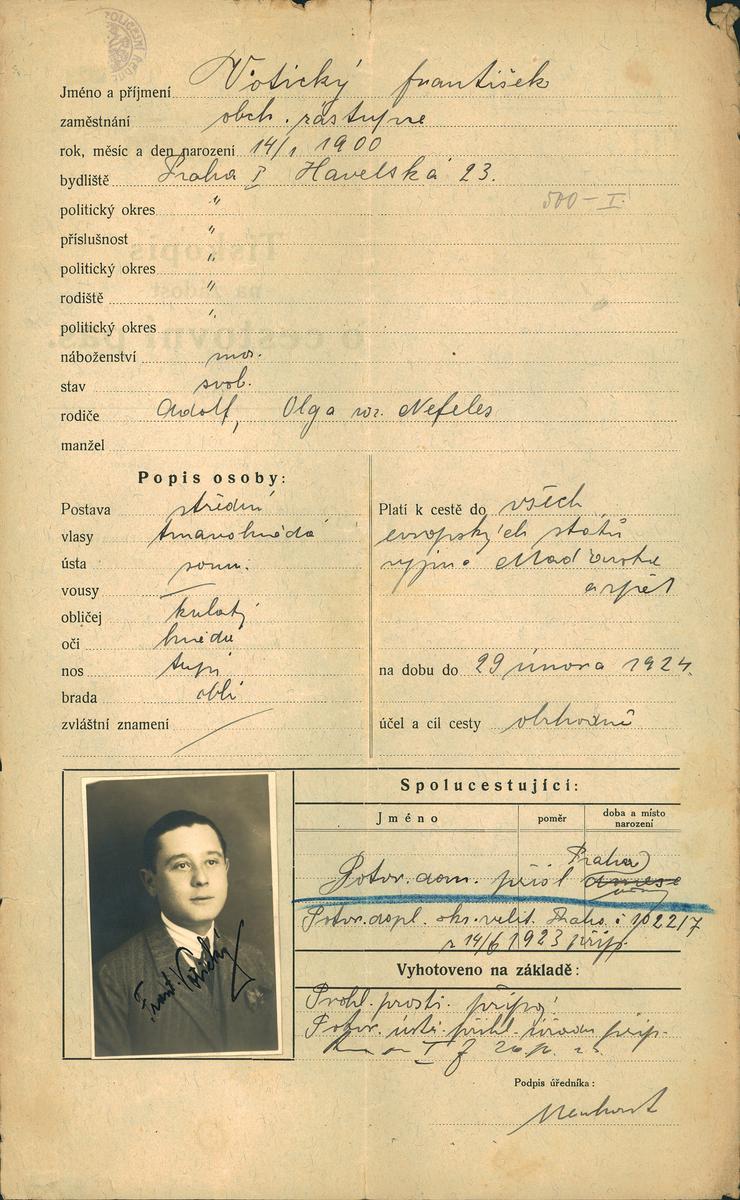 POLICEJNÍ ŘEDIT
Jméno a příjmení Votický František
zaměstnání obch. zástupce
rok, měsíc a den narození 14/1 1900
bydliště Praha I Havelská 23.
500-I.
politický okres "
příslušnost "
politický okres "
rodiště "
politický okres "
náboženství mos.
stav svob.
rodiče Adolf, Olga roz. Nefeles
manžel
Popis osoby:
Postava střední
vlasy tmavohnědé
ústa soum.
vousy —
obličej kulatý
oči hnědé
nos tupý
brada oblí
zvláštní znamení /
Platí k cestě do všech
evropských států
vyjma Maďarska
a zpět
na dobu do 29 února 1924.
účel a cíl cesty obchodně
Spolucestující:
Jméno poměr doba a místo narození
Praha
Potvr. dom. přísl.
Potvr. dopl. okr. velit. Praha č 102217
z 14/6 1923 přip.
Vyhotoveno na základě:
Prohl. prosti. připoj
Potvr. přihl. úřadu přip.
Podpis úředníka:
Frant. Votický